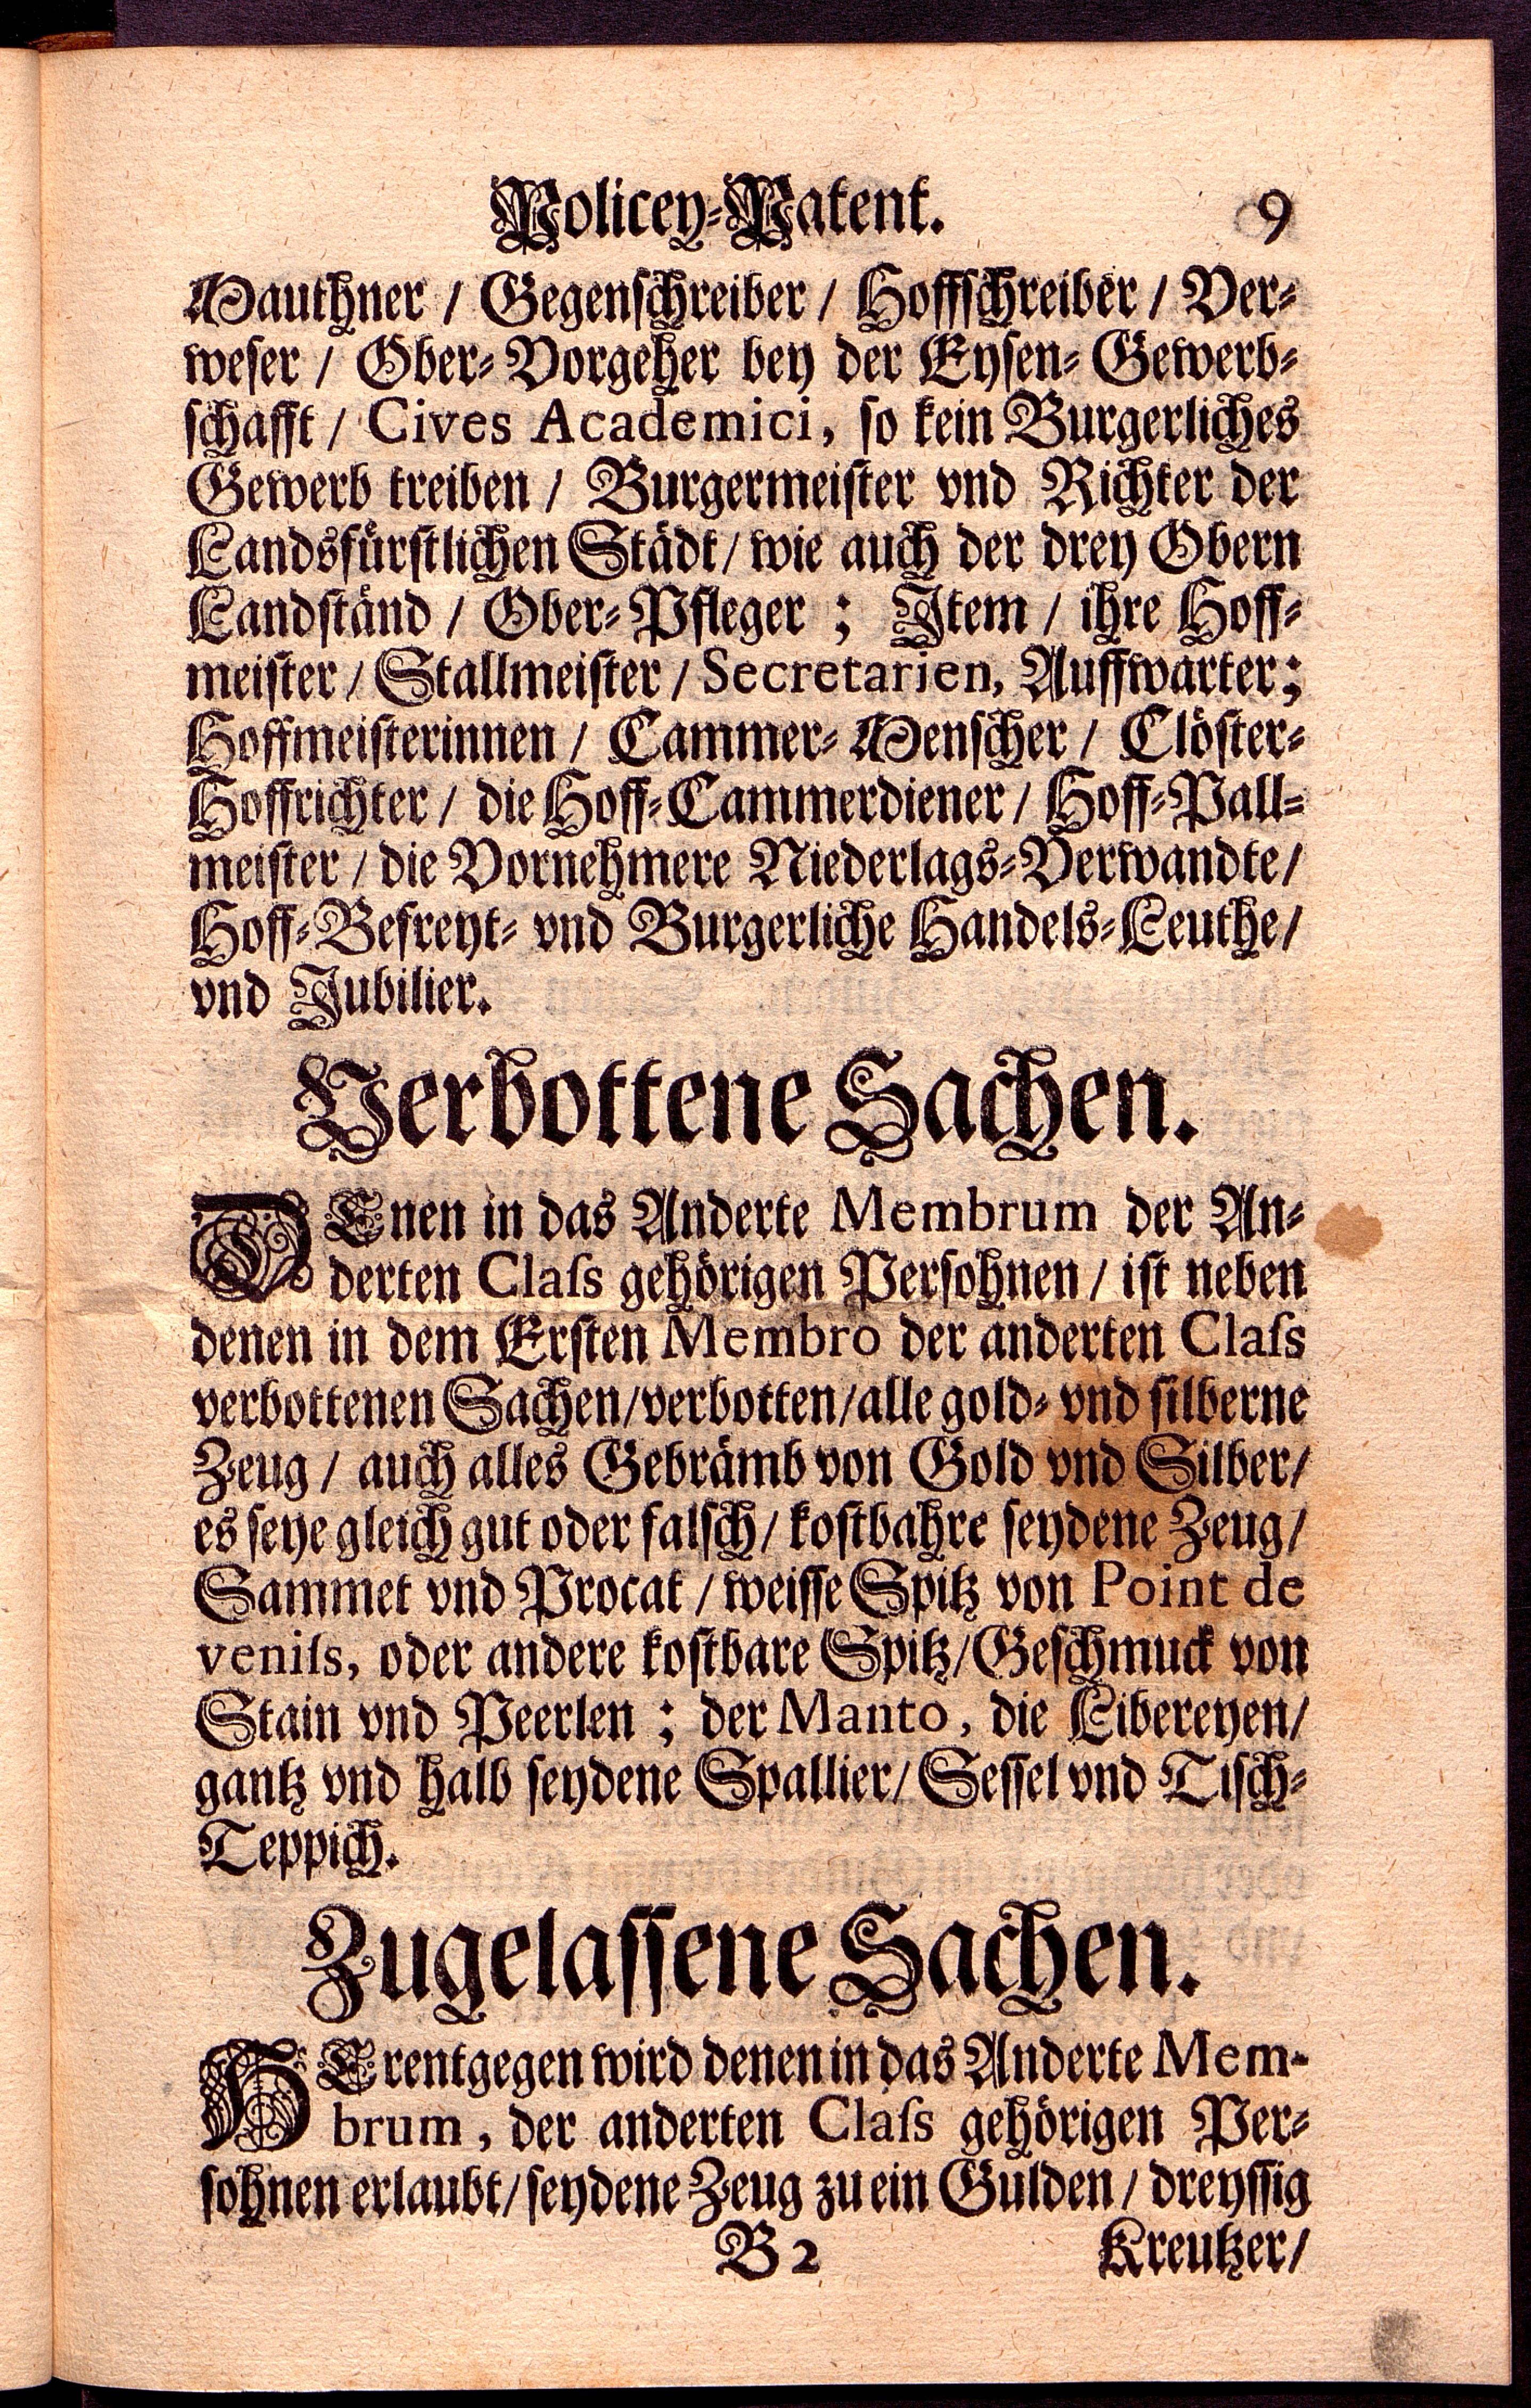 Policey-Patent. 9
Mauthner / Gegenschreiber / Hoffschreiber / Ver-
weser / Ober-Vorgeher bey der Eysen-Gewerb-
schafft / Cives Academici, so kein Burgerliches
Gewerb treiben / Burgermeister vnd Richter der
Landsfürstlichen Städt / wie auch der drey Obern
Landständ / Ober-Pfleger ; Item / ihre Hoff-
meister / Stallmeister / Secretarien, Auffwarter;
Hoffmeisterinnen / Cammer-Menscher / Clöster-
Hoffrichter / die Hoff-Cammerdiener / Hoff-Pall-
meister / die Vornehmere Niederlags-Verwandte /
Hoff-Befreyt- vnd Burgerliche Handels-Leuthe /
vnd Jubilier.
Verbottene Sachen.
DEnen in das Anderte Membrum der An-
derten Claſs gehörigen Persohnen / ist neben
denen in dem Ersten Membro der anderten Claſs
verbottenen Sachen / verbotten / alle gold- vnd silberne
Zeug / auch alles Gebrämb von Gold vnd Silber /
es seye gleich gut oder falsch / kostbahre seydene Zeug /
Sammet vnd Procat / weisse Spitz von Point de
veniſs, oder andere kostbare Spitz / Geschmuck von
Stain vnd Peerlen ; der Manto, die Libereyen /
gantz vnd halb seydene Spallier / Sessel vnd Tisch-
Teppich.
Zugelassene Sachen.
HErentgegen wird denen in das Anderte Mem-
brum, der anderten Claſs gehörigen Per-
sohnen erlaubt / seydene Zeug zu ein Gulden / dreyssig
B 2 Kreutzer /